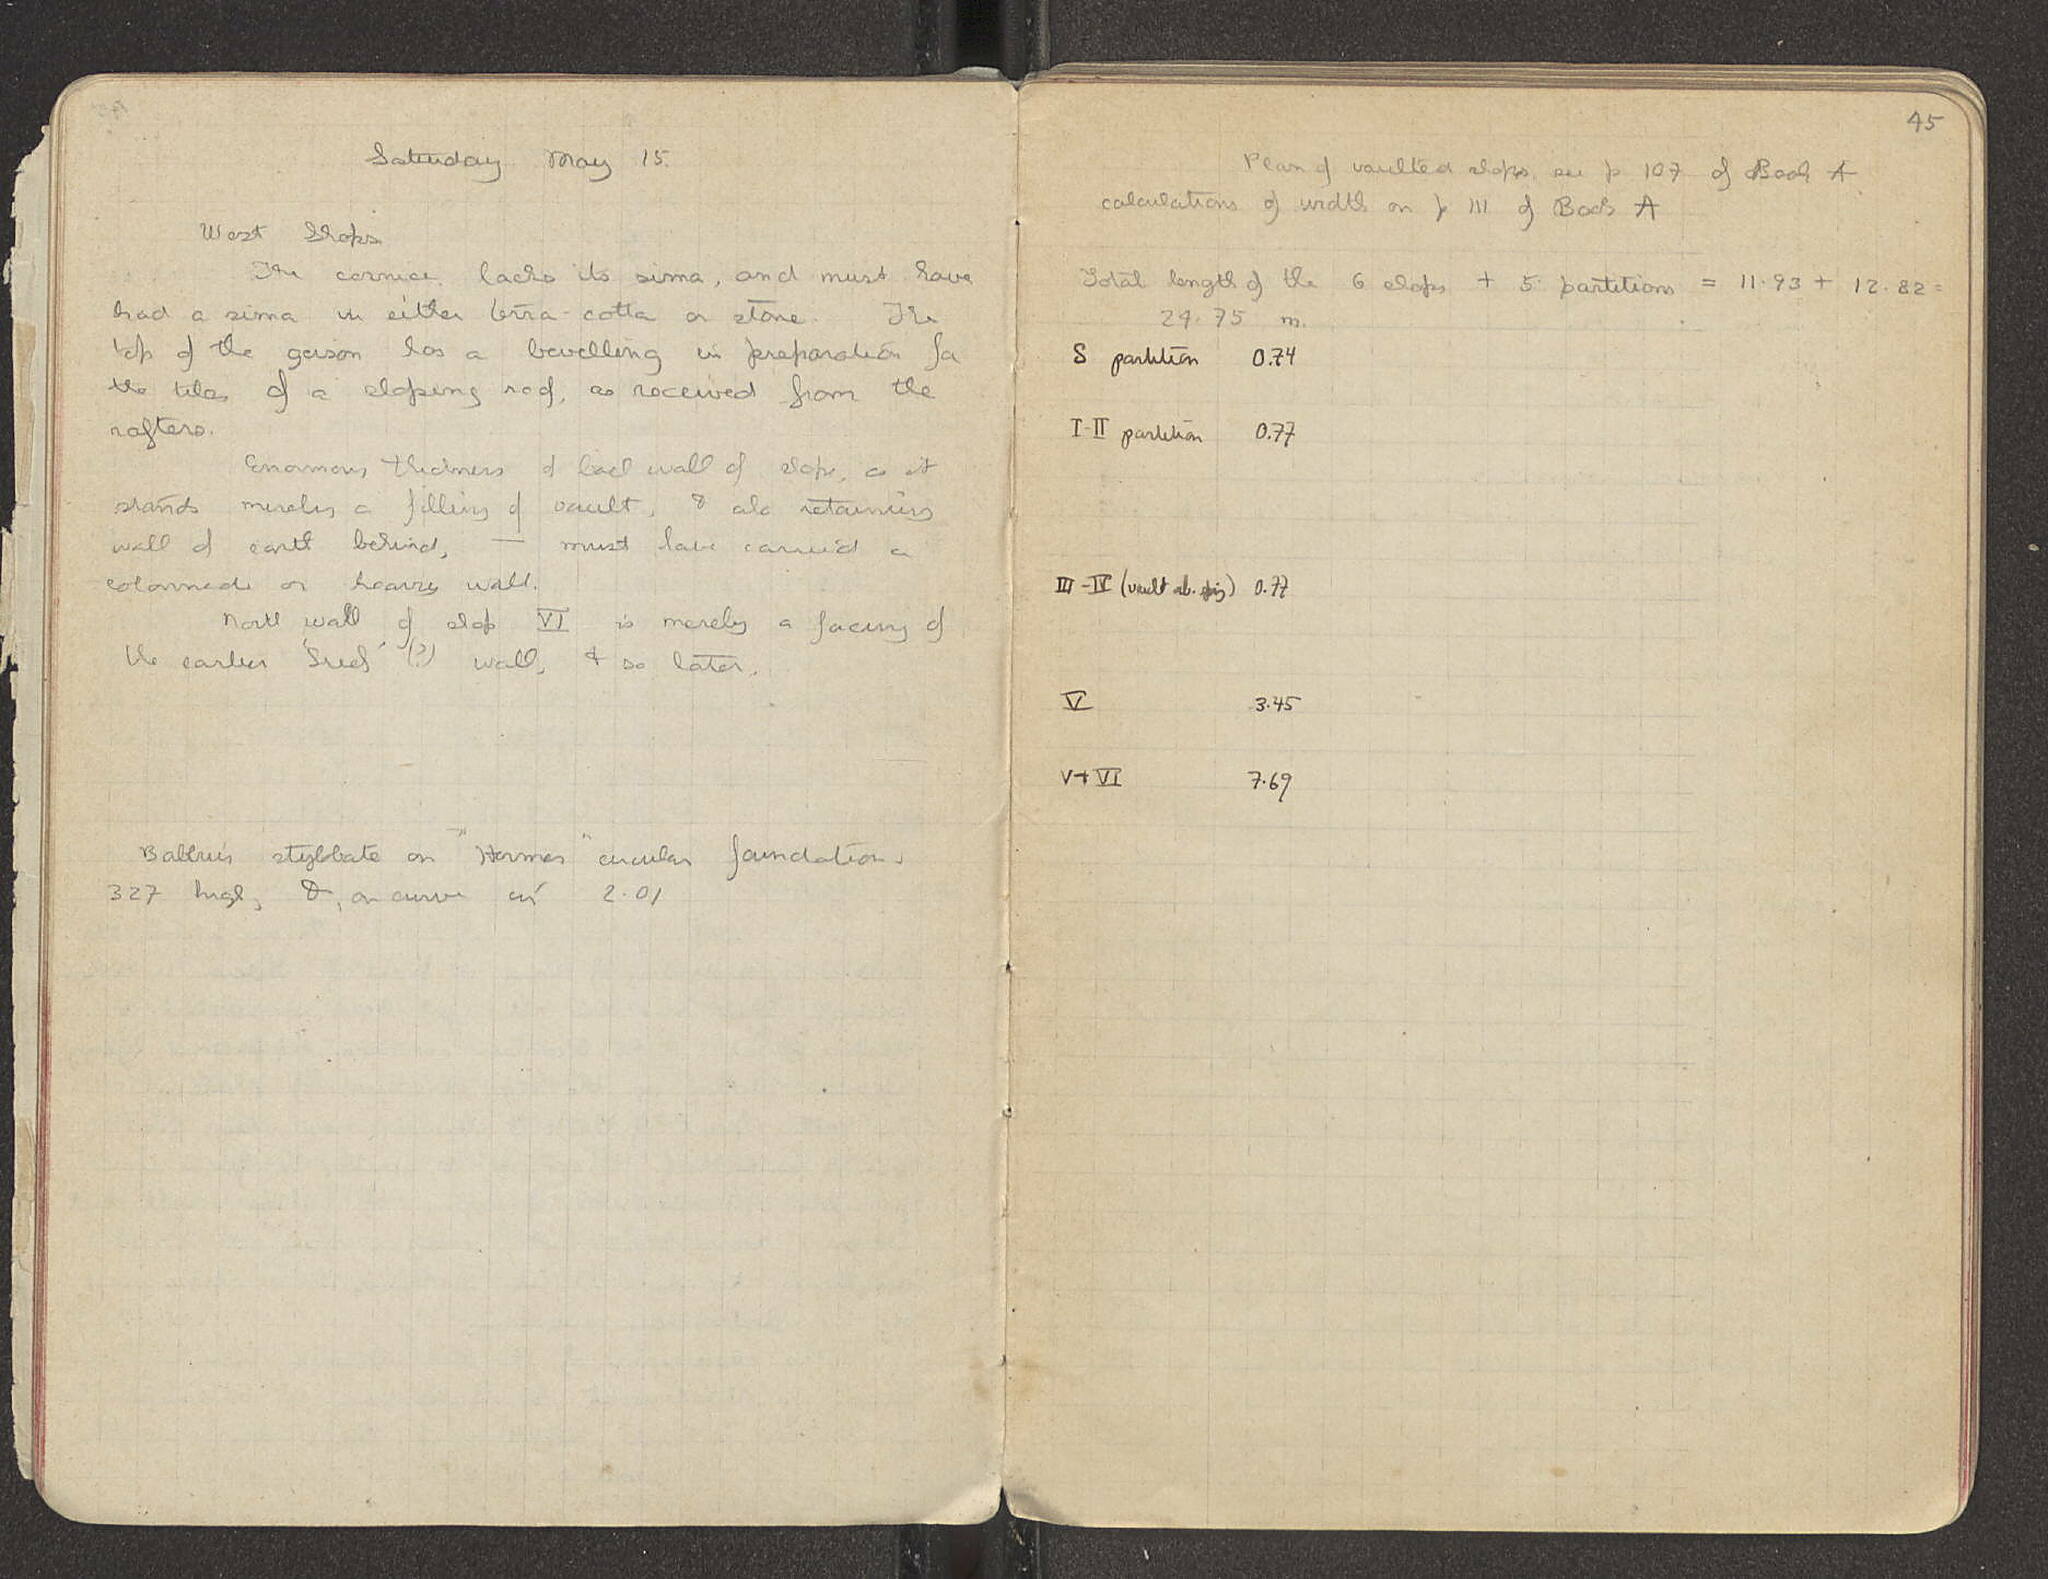 Saturday May 15.
West Shops
The cornice lacks its sima, and must have
had a sima in either terra-cotta or stone. The
top of the geison has a bevelling in preparation for
the tiles of a sloping roof, as received from the
rafters.
Enormous thickness of back wall of shops, as it
stands merely a filling of vault, & also retaining
wall of earth behind, — must have carried a
colonnade or heavy wall.
North wall of shop VI is merely a facing of
the earlier 'Greek' (?) wall, & so later.
stylobate on "Hermes" circular foundation.
327 high, &, on curve 2.01
45
Plan of vaulted shops, see p 107 of Book A
calculations of width on p 111 of Book A
Total length of the 6 shops + 5 partitions = 11.93 + 12.82 =
24.75 m.
S partition 0.74
I-II partition 0.77
III-IV (vault ab. spring) 0.77
V 3.45
V+VI 7.69